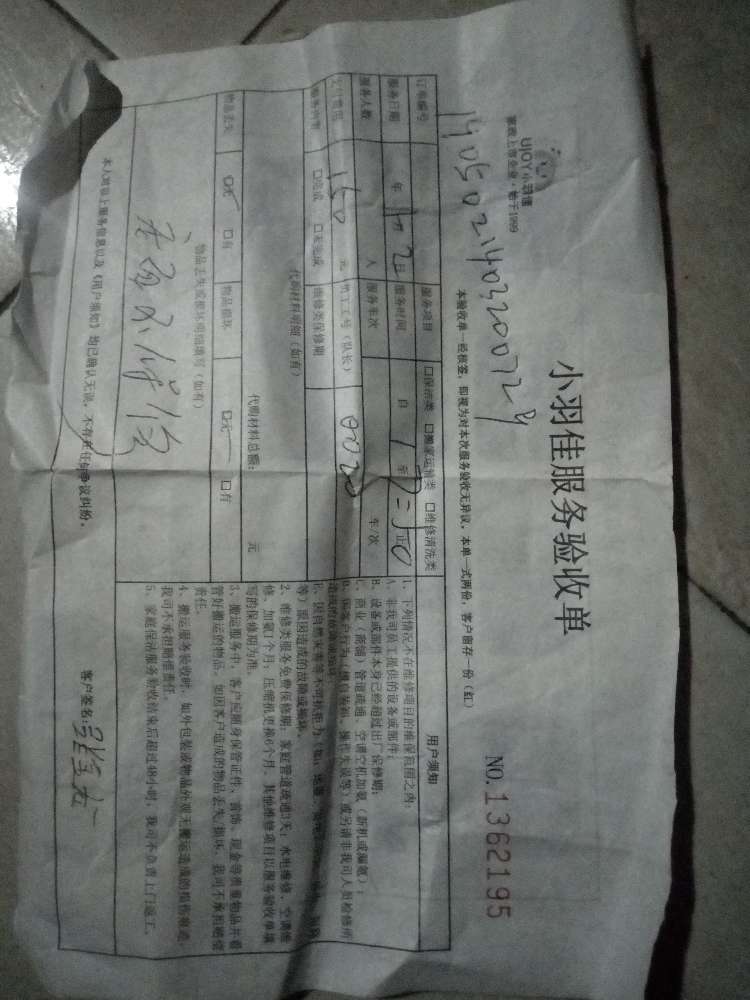 UJOY小羽佳
家政上市企业·始于1999
小羽佳服务验收单
NO.1362195
本验收单一经核签，即视为对本次服务验收无异议，本单一式两份，客户留存一份（红）
订单编号
服务项目 □保洁类 □搬家运输类 □维修清洗类
服务日期 年 月 2日 服务时间 自 至 止
服务人数 人 服务车次 年/次
支付费用 150 元 员工工号（队长） 0020
服务内容 □完成 □未完成 维修类保修期
代购材料明细（如有）
代购材料总额： 元
物品丢失 □无 □有 物品损坏 □无 □有
物品丢失或损坏明细填写（如有）
本人对以上服务信息以及《用户须知》均已确认无误，不存在任何争议纠纷。
用户须知
1、下列情况不在维修项目的维保范围之内：
A、非我司员工提供的设备或部件；
B、设备或部件本身已经超过出厂保修期；
C、商业（商铺）管道疏通、空调空机加氨（新机或漏氨）；
等）原因造成的故障或损坏。
2、维修类服务免费保修期：家庭管道疏通3天；水电维修、空调维
修、加氨1个月；压缩机更换6个月，其他维修项目以服务验收单填
写的保修期为准。
3、搬运服务中，客户应随身保管证件、首饰、现金等贵重物品并看
管好搬运的物品。如因客户造成的物品丢失/损坏，我司不承担赔偿
责任。
4、搬运服务验收时，如外包装或物品外观无搬运造成的损伤痕迹，
我司不承担赔偿责任。
5、家庭保洁服务验收结束后超过48小时，我司不负责上门返工。
客户签名：